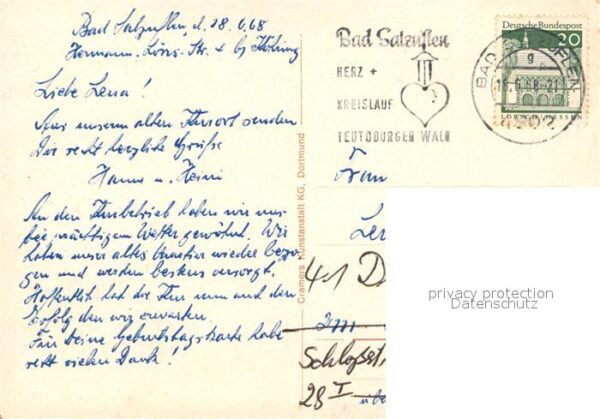 Bad Salzuflen, d. 28.6.68
Hermann-Löns-Str. 4 bg
Liebe Lena!
Aus unserm alten Kurort senden
Dir recht herzliche Grüße
Hanne u. Heini
An den Kurbetrieb haben wir uns
bei prächtigem Wetter gewöhnt. Wir
haben unser altes Quartier wieder bezo-
gen und werden bestens versorgt.
Hoffentlich hat die Kur nun auch den
Erfolg den wir erwarten.
Für Deine Geburtstagskarte habe
recht vielen Dank!
Cramers Kunstanstalt KG. Dortmund
Bad Salzuflen
HERZ +
KREISLAUF
TEUTOBURGER WALD
Deutsche Bundespost
20
LORSCH/HESSEN
BAD SALZUFLEN
g
4902
Frau
Len
41 D
Schloßst
28 I
privacy protection
Datenschutz